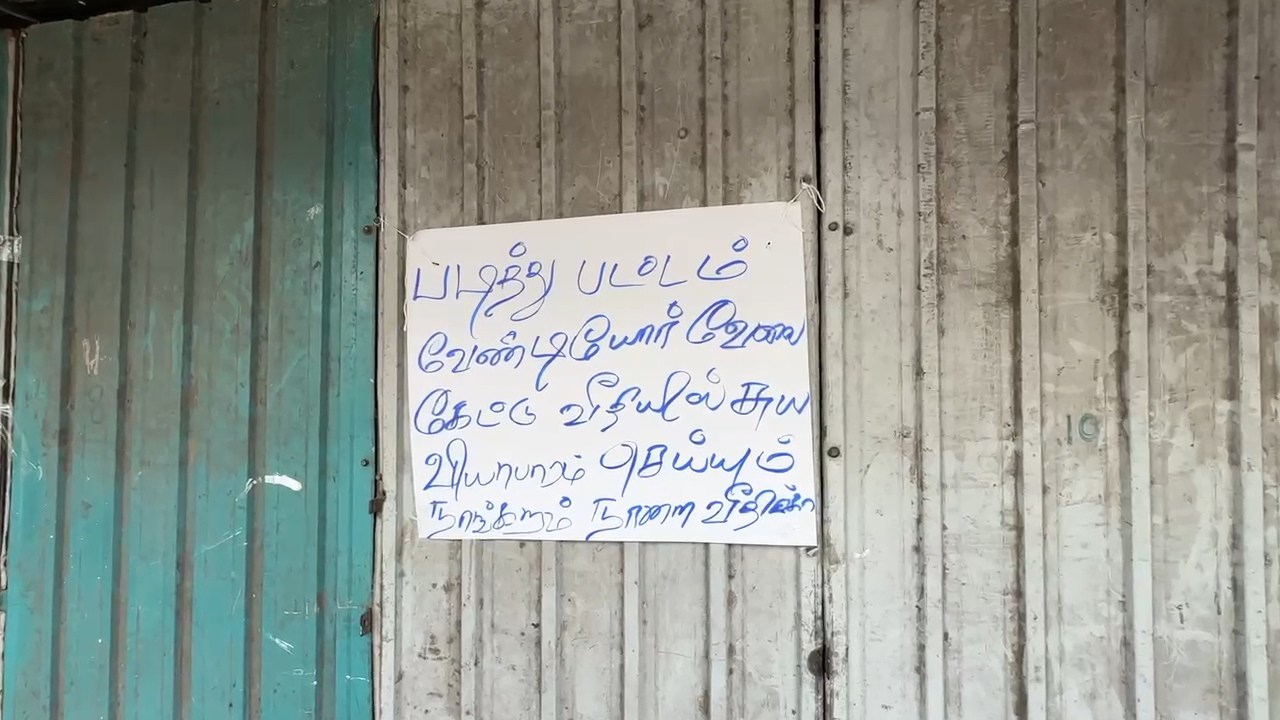 படித்து பட்டம்
வேண்டியோர் வேலை
கேட்டு வீதியில் சுய
வியாபாரம் செய்யும்
நாங்களும் நாளை வீதிக்கா
10